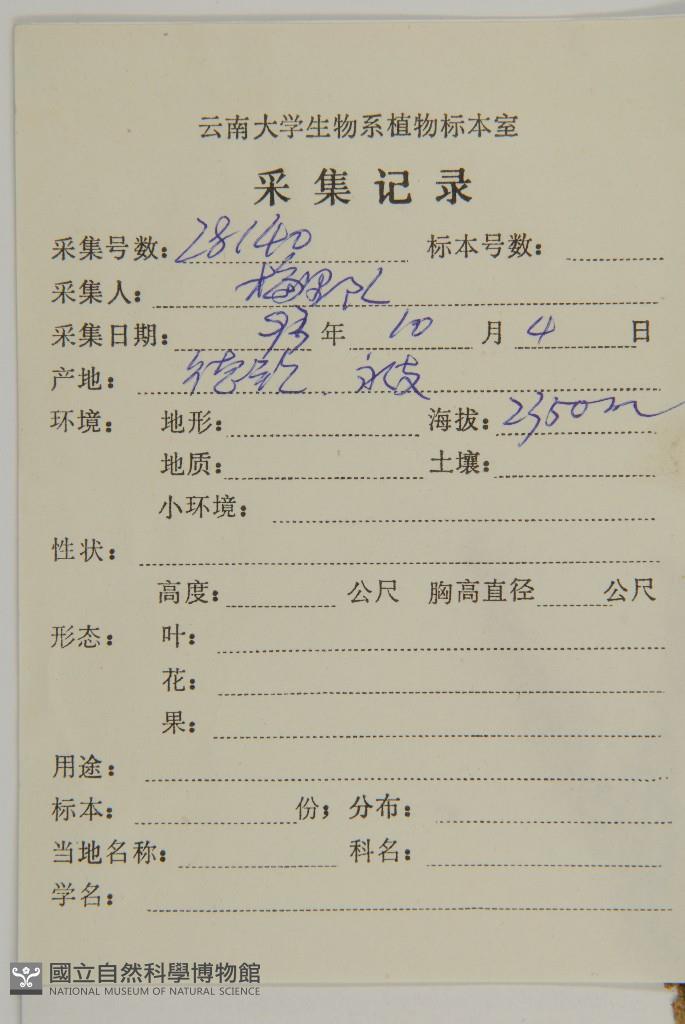 云南大学生物系植物标本室
采集记录
采集号数：28140 标本号数：
采集人：梅里队
采集日期：93年10月4日
产地：德钦、永支
环境： 地形： 海拔：2350m
地质： 土壤：
小环境：
性状：
高度： 公尺 胸高直径 公尺
形态： 叶：
花：
果：
用途：
标本： 份；分布：
当地名称： 科名：
学名：
國立自然科學博物館
NATIONAL MUSEUM OF NATURAL SCIENCE